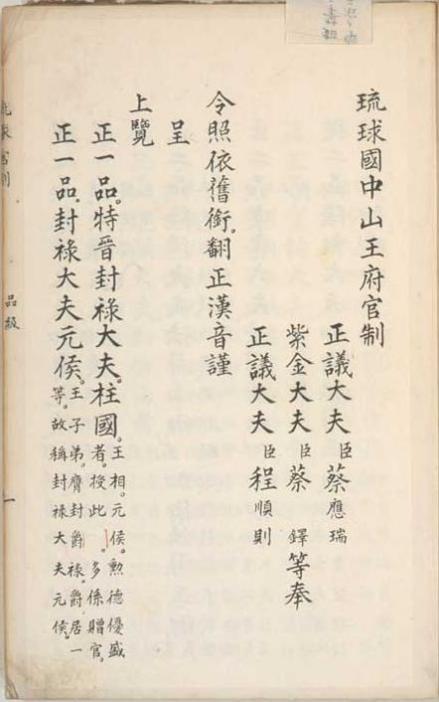 琉球國中山王府官制
正議大夫臣蔡應瑞
紫金大夫臣蔡鐸等奉
正議大夫臣程順則
令照依舊銜。翻正漢音謹
呈
上覽
正一品。特晉封祿大夫。柱國。王相。元侯。勲德優盛者。授此。多係贈官。
正一品。封祿大夫元侯。王子弟。膺封爵祿。爵居一等。故稱封祿大夫元侯。
品級
一